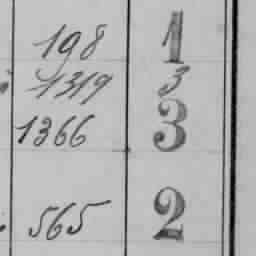 198 1
1319 3
1366 3
565 2